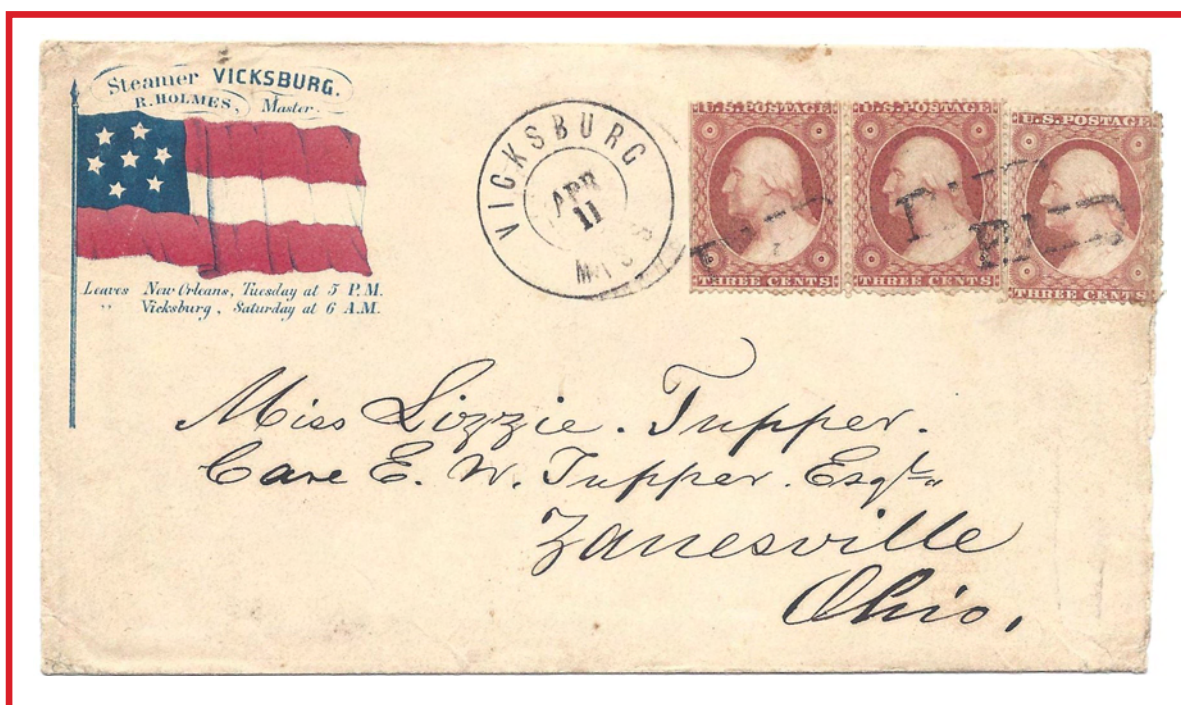 Steamer VICKSBURG.
R. HOLMES, Master.
Leaves New Orleans, Tuesday at 5 P.M.
" Vicksburg, Saturday at 6 A.M.
VICKSBURG
APR
11
MISS
U.S. POSTAGE
THREE CENTS
U.S. POSTAGE
THREE CENTS
U.S. POSTAGE
THREE CENTS
Miss Lizzie. Tupper.
Care E. W. Tupper. Esqr
Zanesville
Ohio.